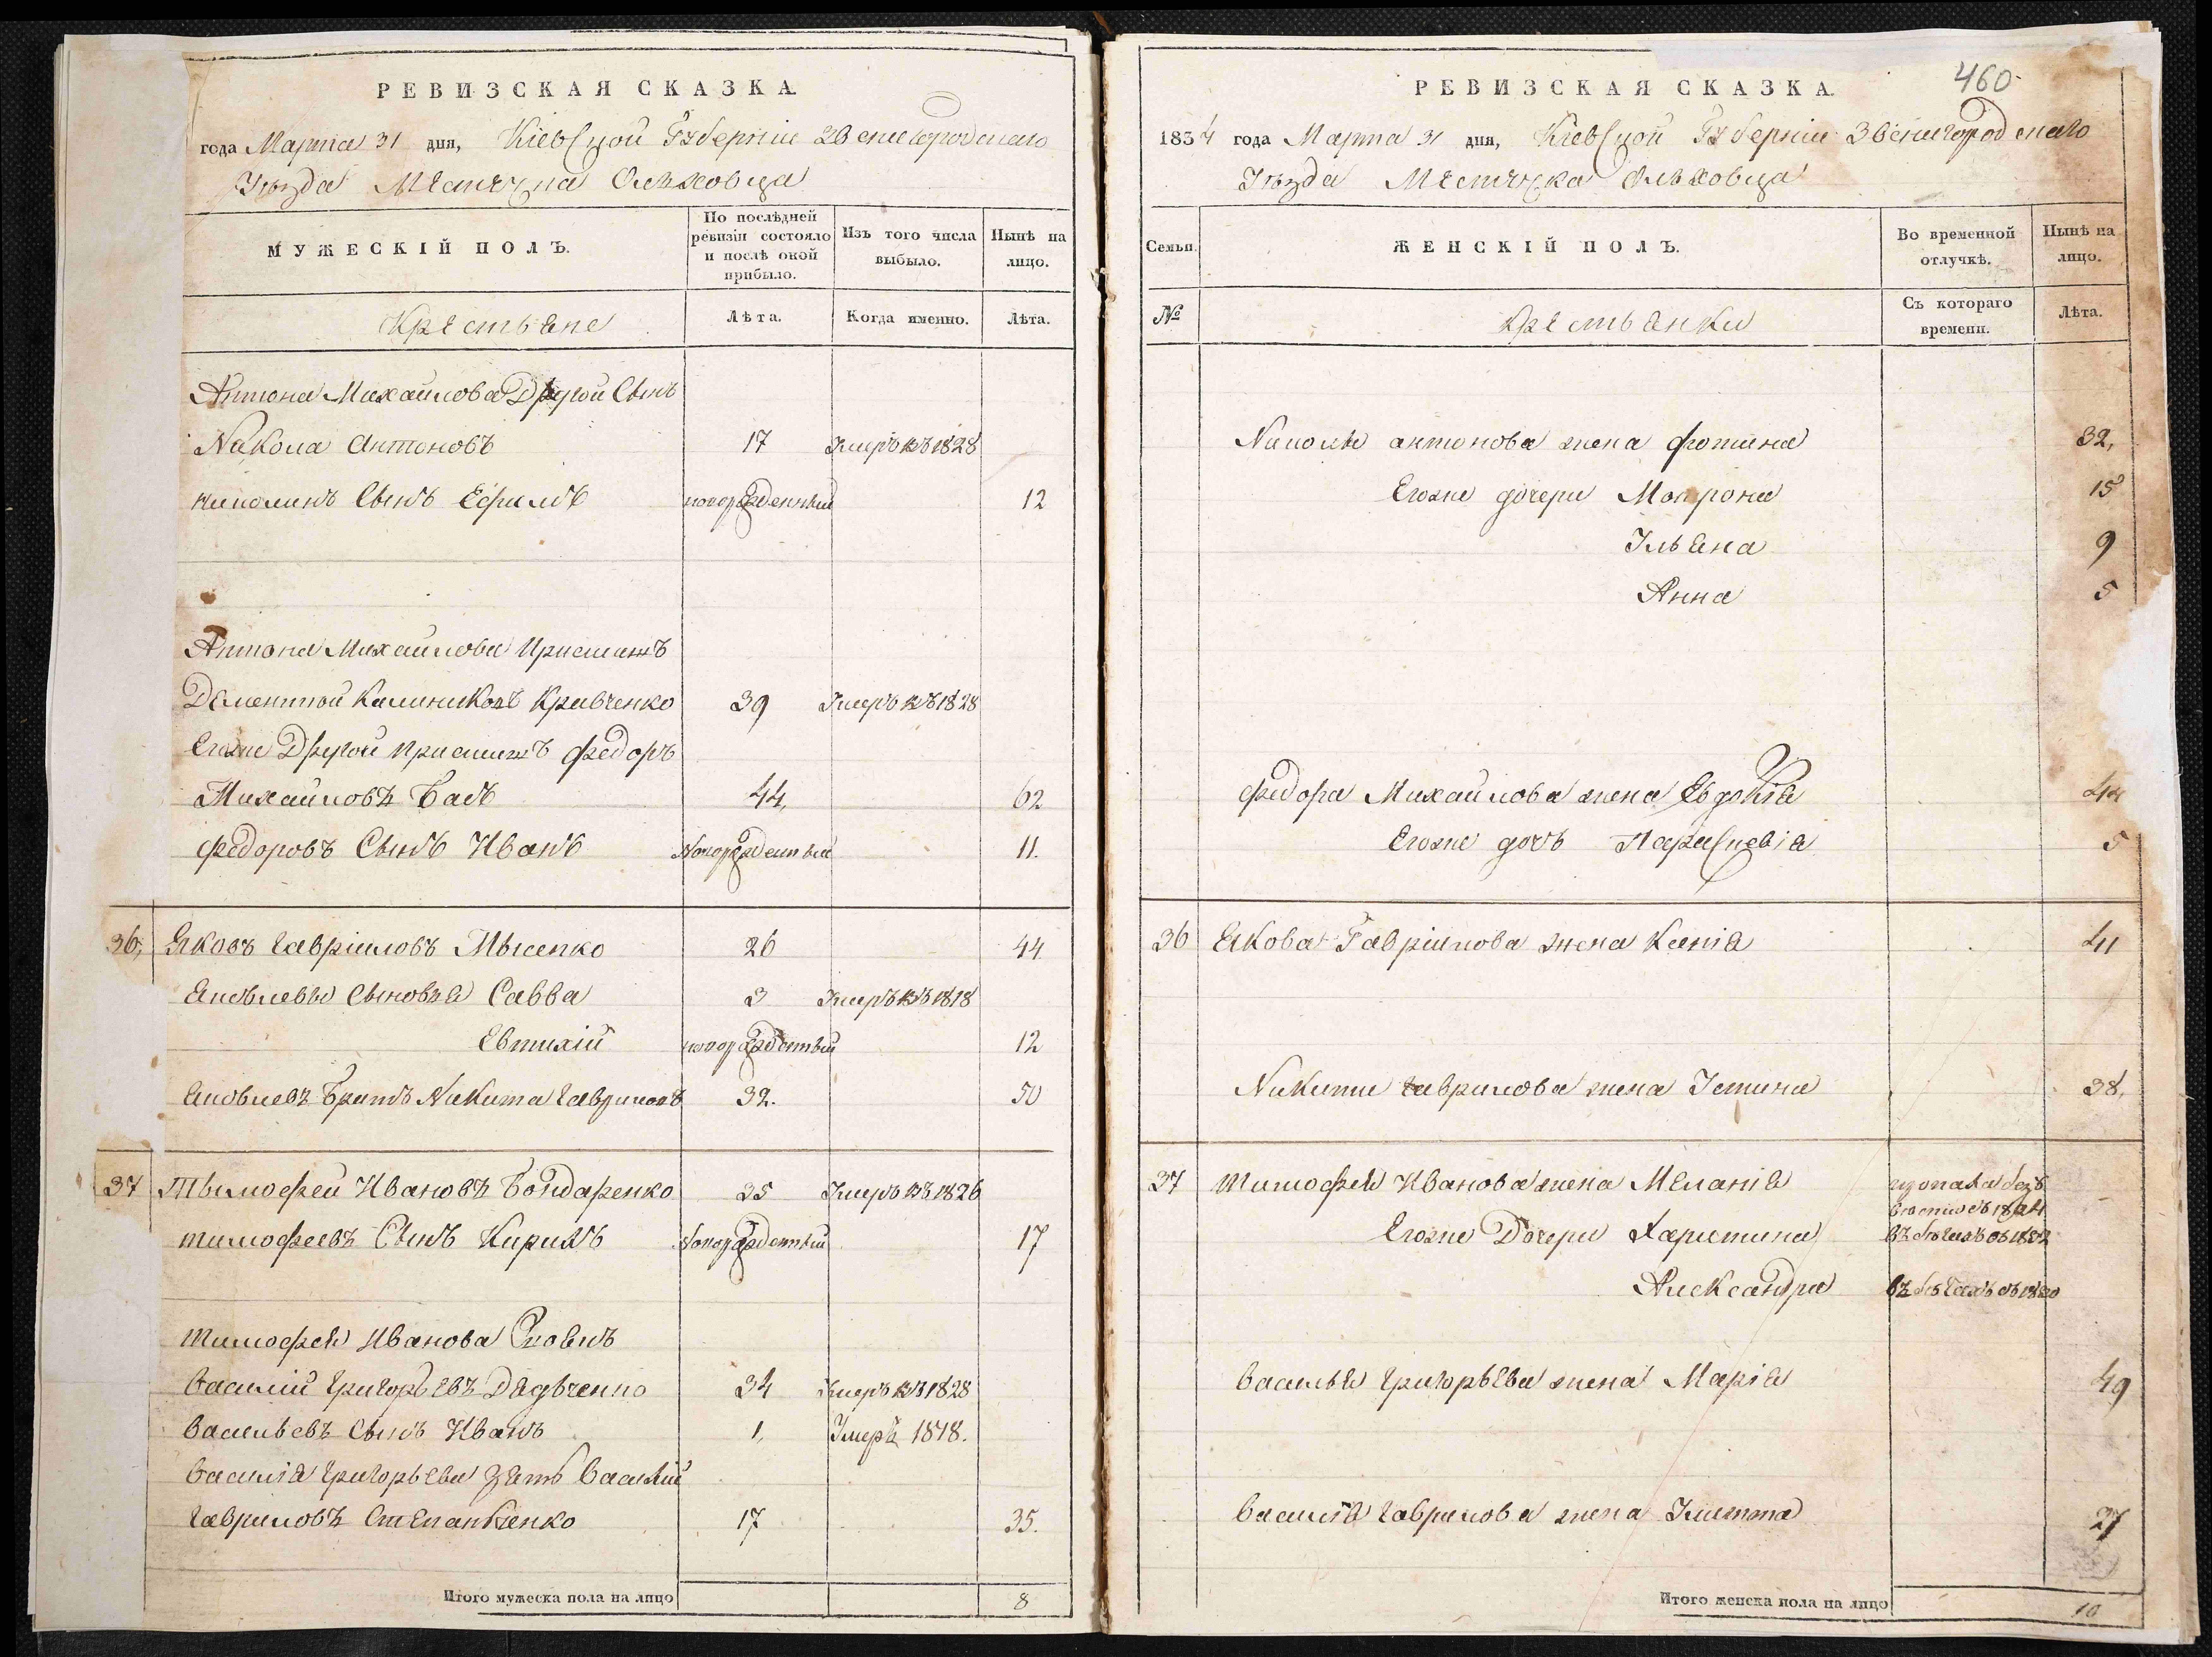 РЕВИЗСКАЯ СКАЗКА.
года Марта 31 дня, Кіевской Губерніи Звенигородскаго
Уѣзда Местечка Ольховца
МУЖЕСКІЙ ПОЛЪ.
По послѣдней ревизіи состояло и послѣ оной прибыло.
Изъ того числа выбыло.
Нынѣ на лицо.
Крестьяне
Лѣта.
Когда именно.
Лѣта.
Антона Михайлова Другой Сынъ
Никола Антоновъ 17 Умеръ въ 1828
николинъ Сынъ Ефимъ новорожденный 12
Антона Михайлова Приемышъ
Дементий Калиниковъ Кравченко 39 Умеръ въ 1828
Егоже Другой приемышъ федоръ
Михайловъ Бабъ 44, 62
федоровъ Сынъ Иванъ Новорожденный 11.
36, Яковъ Гавріиловъ Мысенко 26 44
Яковлевы Сыновья Савва 3 Умеръ въ 1818
Евтихій новорожденный 12
Яковлевъ Братъ Никита Гавриловъ 32. 50
37 Тымофей Ивановъ Бондаренко 35 Умеръ въ 1826
тимофеевъ Сынъ Кирилъ Новорожденный 17
тимофея Иванова
Василий Григорьевъ Дядьченко 34 Умеръ въ 1828
Васильевъ Сынъ Иванъ 1, Умеръ 1818.
Василія Григорьева Зять Василий
Гавриловъ Степанченко 17 35.
Итого мужеска пола на лицо 8
460
РЕВИЗСКАЯ СКАЗКА.
1834 года Марта 31 дня, Кіевской Губерніи Звенигородскаго
Уѣзда Местечка Ольховца
Семьи.
ЖЕНСКІЙ ПОЛЪ.
Во временной отлучкѣ.
Нынѣ на лицо.
№
Крестьянки
Съ котораго времени.
Лѣта.
Николы антонова жена фотина 32,
Егоже дочери Матрона 15
Ульяна 9
Анна 5
федора Михайлова жена Евдокія 44
Егоже дочь Параскевія 5
36 Якова Гавріилова жена Ксенія 41
Никиты Гаврилова жена Устина 38,
37 тимофея Иванова жена Меланія
Егоже Дочери Харистина въ бѣгахъ съ 1832
Александра въ бѣгахъ съ 1830
Василья Григорьева жена Марія 49
Василія Гаврилова жена 27
Итого женска пола на лицо 10